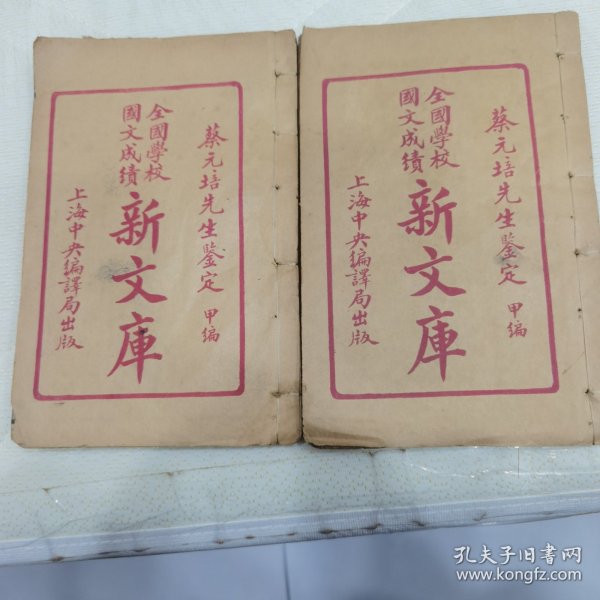 蔡元培先生鑒定 甲編
全國學校
國文成績
新文庫
上海中央編譯局出版
蔡元培先生鑒定 甲編
全國學校
國文成績
新文庫
上海中央編譯局出版
孔夫子旧书网
www.kongfz.com